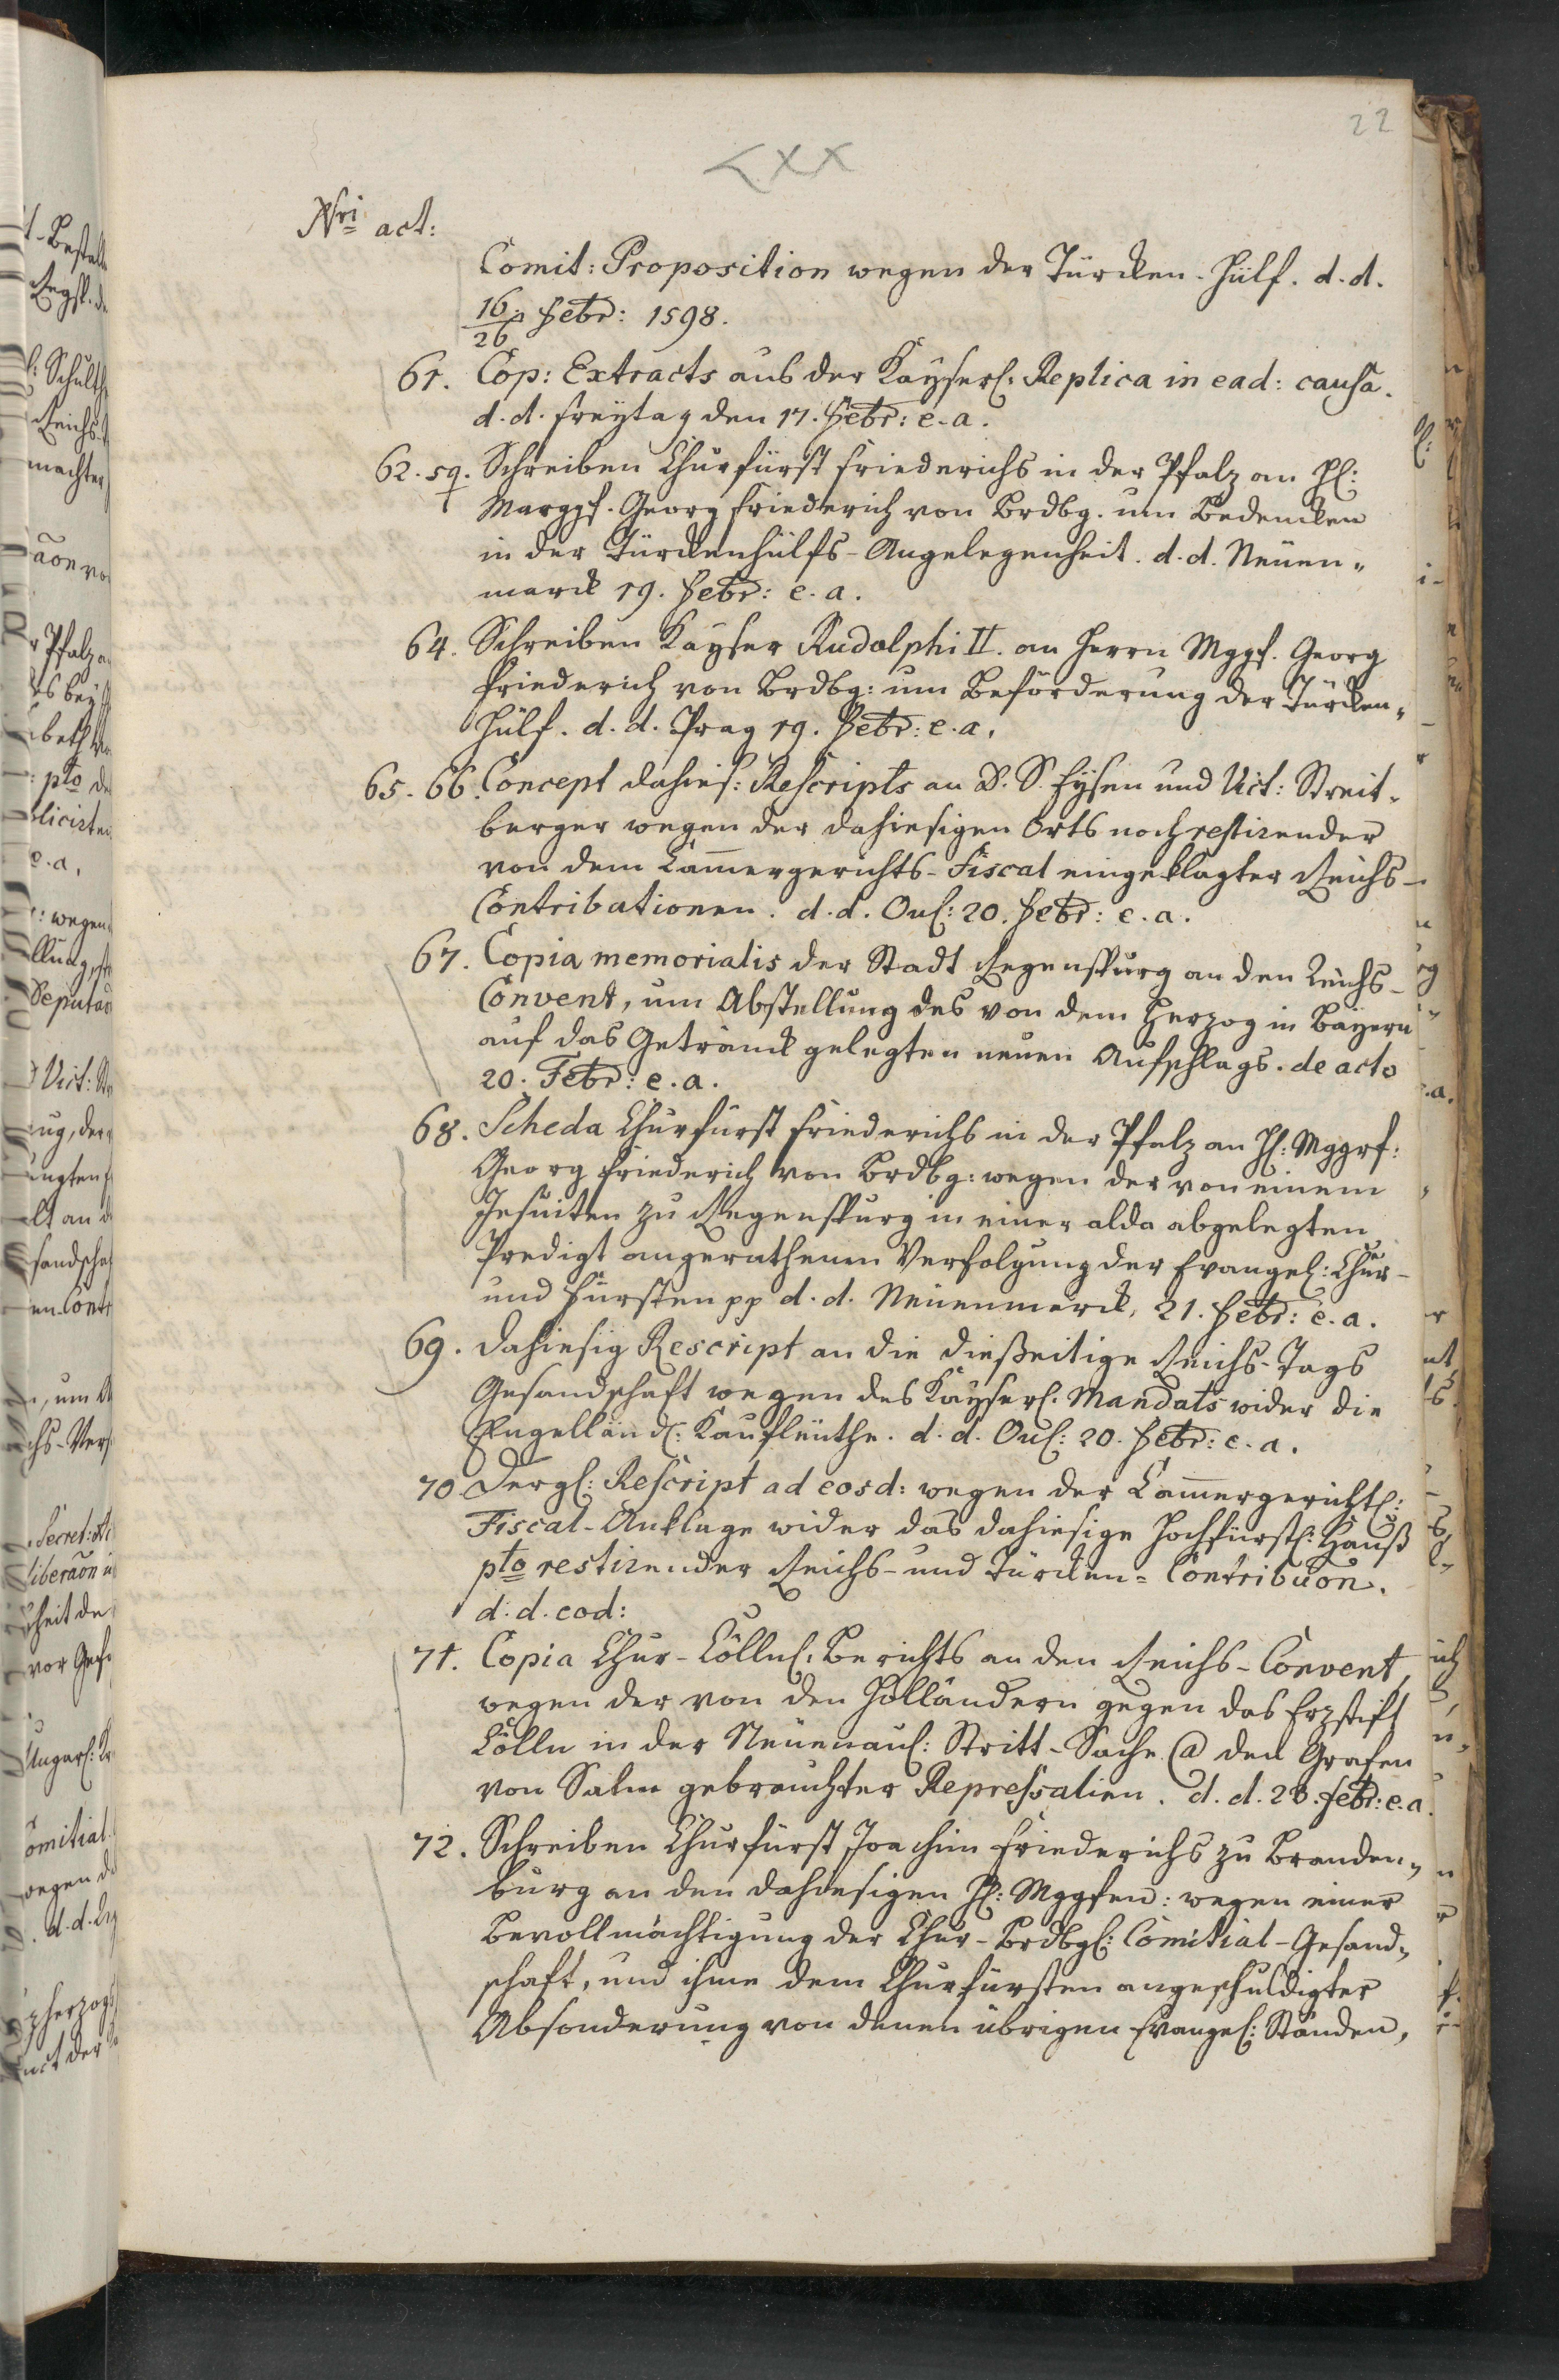 22
LXX
Nri act:
Comit: Proposition wegen der Türcken-Hülf. d. d.
16/26 Febr: 1598.
61. Cop: Extracts aus der Kayserl: Replica in ead: causa.
d. d. Freÿtag den 17. Febr: e. a.
62. sq. Schreiben Churfürst Friederichs in der Pfalz an H:
Marggf. Georg Friederich von Brdbg. um Bedencken
in der Türckenhülfs-Angelegenheit. d. d. Neuen-
marck 19. Febr: e. a.
64. Schreiben Kayser Rudolphi II. an Herrn Mggf. Georg
Friederich von Brdbg: um Beförderung der Türcken-
Hülf. d. d. Prag 19. Febr: e. a.
65. 66. Concept dahies: Rescripts an D. S. Eysen und Vict: Streit-
berger wegen der dahiesigen Orts noch restirender
von dem Cam̄ergerichts-Fiscal eingeklagter Reichs-
Contributionen. d. d. Onl: 20. Febr: e. a.
67. Copia memorialis der Stadt Regenspurg an den Reichs-
Convent, um Abstellung des von dem Herzog in Bayern
auf das Getränck gelegten neuen Aufschlags. de acto
20. Febr: e. a.
68. Scheda Churfürst Friederichs in der Pfalz an H: Mggrf:
Georg Friederich von Brdbg: wegen der von einem
Jesuiten zu Regenspurg in einer alda abgelegten
Predigt angerathenen Verfolgung der Evangel: Chur-
und Fürsten pp d. d. Neuenmarck, 21. Febr: e. a.
69. Dahiesig Rescript an die dießeitige Reichs-Tags
Gesandschaft wegen des Kayserl. Mandats wider die
Engelländ: Kaufleuthe. d. d. Onl: 20. Febr: e. a.
70. Dergl: Rescript ad eosd: wegen der Cam̄ergerichtl:
Fiscal-Anklage wider das dahiesige Hochfürstl: Hauß
pto restirender Reichs- und Türcken-Contribuōn.
d. d. eod:
71. Copia Chur-Cöllnl: Berichts an den Reichs-Convent,
wegen der von den Holländern gegen das Erzstift
Cölln in der Neuenaul: Stritt-Sache @ den Grafen
von Salm gebrauchter Repressalien. d. d. 23. Febr: e. a.
72. Schreiben Churfürst Joachim Friederichs zu Branden-
burg an den dahiesigen H: Mggfen: wegen einer
Bevollmächtigung der Chur-Brdbgl: Comitial-Gesand-
schaft, und ihme dem Churfürsten angeschuldigter
Absonderung von denen übrigen Evangel: Ständen,